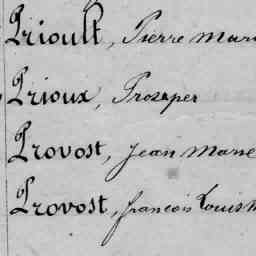 Prioult, Pierre Mari
Prioux, Prosper
Provost, Jean Marie
Provost, françois Louis M